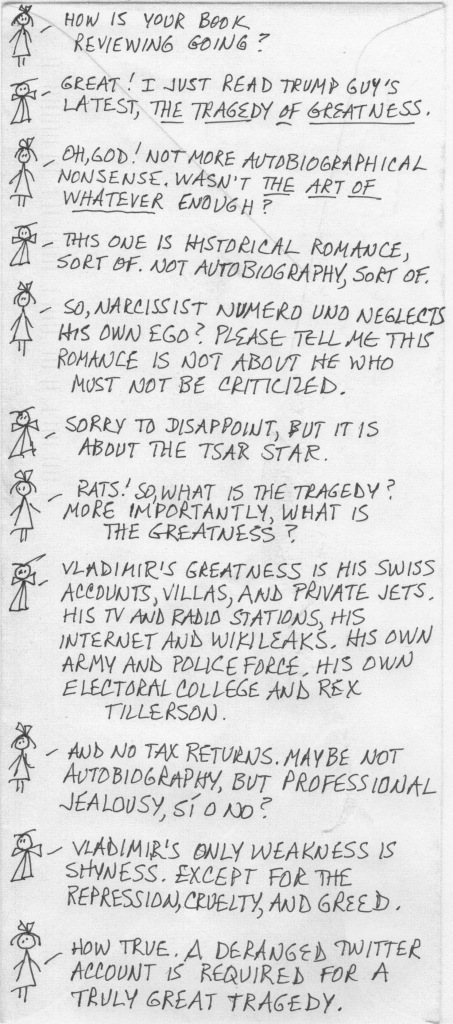 HOW IS YOUR BOOK
REVIEWING GOING?
GREAT! I JUST READ TRUMP GUY'S
LATEST, THE TRAGEDY OF GREATNESS.
OH, GOD! NOT MORE AUTOBIOGRAPHICAL
NONSENSE. WASN'T THE ART OF
WHATEVER ENOUGH?
THIS ONE IS HISTORICAL ROMANCE,
SORT OF. NOT AUTOBIOGRAPHY, SORT OF.
SO, NARCISSIST NUMERO UNO NEGLECTS
HIS OWN EGO? PLEASE TELL ME THIS
ROMANCE IS NOT ABOUT HE WHO
MUST NOT BE CRITICIZED.
SORRY TO DISAPPOINT, BUT IT IS
ABOUT THE TSAR STAR.
RATS! SO, WHAT IS THE TRAGEDY?
MORE IMPORTANTLY, WHAT IS
THE GREATNESS?
VLADIMIR'S GREATNESS IS HIS SWISS
ACCOUNTS, VILLAS, AND PRIVATE JETS.
HIS TV AND RADIO STATIONS, HIS
INTERNET AND WIKILEAKS. HIS OWN
ARMY AND POLICE FORCE. HIS OWN
ELECTORAL COLLEGE AND REX
TILLERSON.
AND NO TAX RETURNS. MAYBE NOT
AUTOBIOGRAPHY, BUT PROFESSIONAL
JEALOUSY, SÍ O NO?
VLADIMIR'S ONLY WEAKNESS IS
SHYNESS. EXCEPT FOR THE
REPRESSION, CRUELTY, AND GREED.
HOW TRUE. A DERANGED TWITTER
ACCOUNT IS REQUIRED FOR A
TRULY GREAT TRAGEDY.